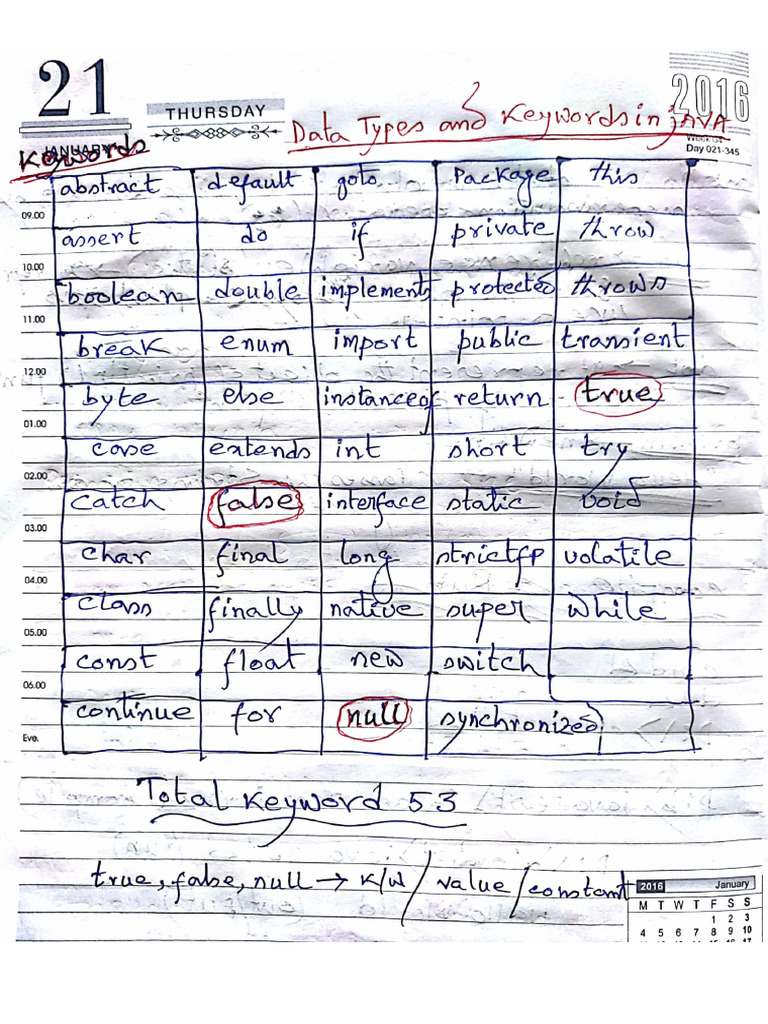 21
THURSDAY
2016
JANUARY
Data Types and Keywords in JAVA
Keywords
Day 021-345
abstract default goto Package this
09.00
assert do if private throw
10.00
boolean double implements protected throws
11.00
break enum import public transient
12.00
byte else instanceof return true
01.00
case extends int short try
02.00
catch false interface static void
03.00
char final long strictfp volatile
04.00
class finally native super while
05.00
const float new switch
06.00
continue for null synchronized
Eve.
Total Keyword 53
true, false, null → K/W / value / constant
2016 January
M T W T F S S
1 2 3
4 5 6 7 8 9 10